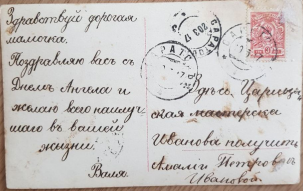 Здравствуй дорогая
мамочка.
Поздравляю васъ съ
Днемъ Ангела и
желаю всего наилуч-
шаго въ вашей
жизни.
Валя.
Здесь Цариц
ская мастерска
Иванова получить
Амаліи Петровнѣ
Ивановой
САРА